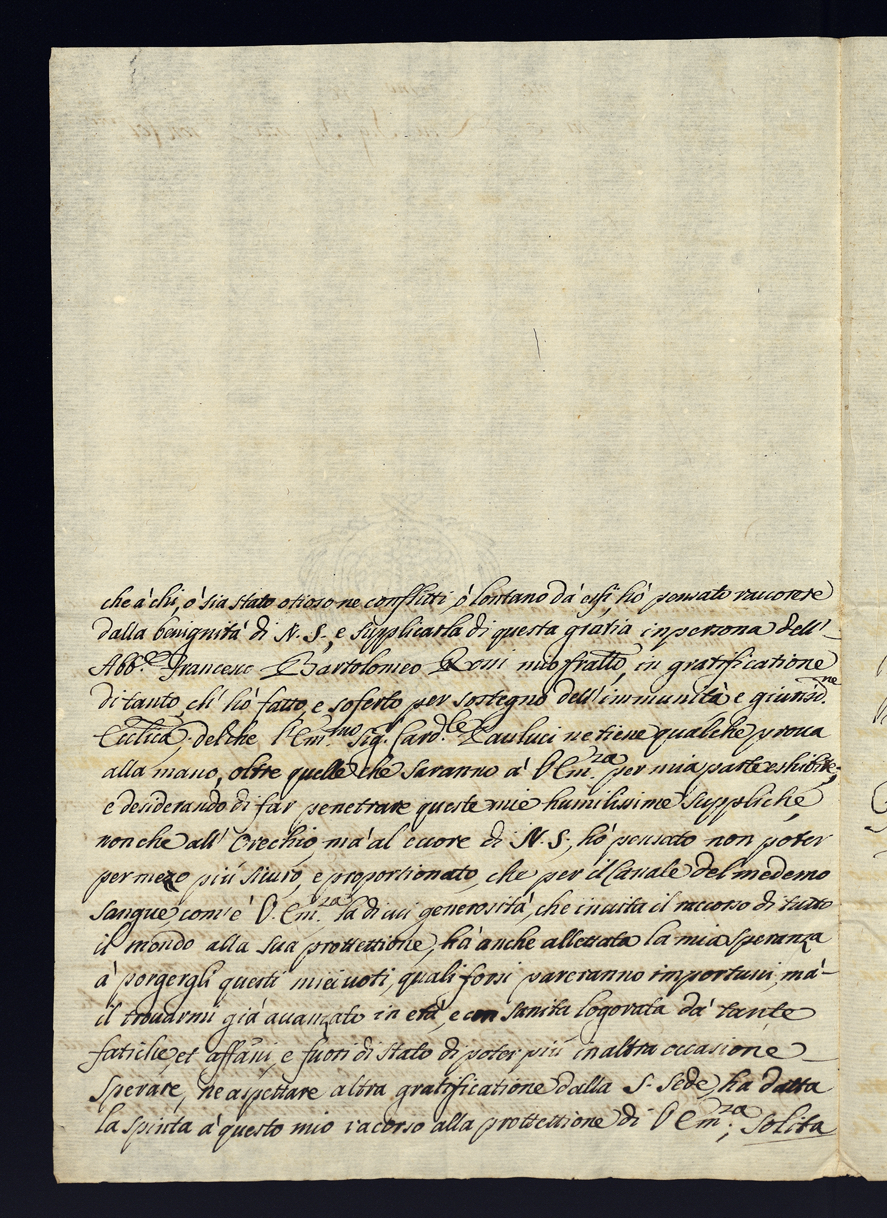 che à chi, o' sia stato otioso ne conflitti, o' lontano dà essi hò pensato raccorere
dalla benignità di N. S., e supplicarla di questa gratia in persona dell'
Abb.e Francesco Bartolomeo Rossi mio fratto, in gratificatione
di tanto, ch' hò fatto, e soferto per sostegno dell' immunità e giurisd.ne
Ecclica, del che l' Em.mo Sig. Card.le Paulucci ne tiene qualche proua
alla mano, oltre quelle che saranno à V Em.za per mia parte eshibite;
e desiderando di far penetrare queste mie humilissime suppliche,
non che all' Orechio, mà al cuore di N. S., hò pensato non poter
per mezo più siuro, e proportionato, che per il Canale del medemo
sangue com' è V. Em.za la di cui generosità, che inuita il raccorso di tutto
il mondo alla sua prottettione, hà anche allettata la mia speranza
à porgergli questi miei voti, quali forsi pareranno importuni, mà
il trouarmi già auanzato in età, e con sanità logorata dà tante
fatiche, et affani, e fuori di stato di poter più in altra occasione
sperare, ne aspettare altra gratificatione dalla S. Sede, hà datta
la spinta à questo mio racorso alla prottettione di V Em.za, solita